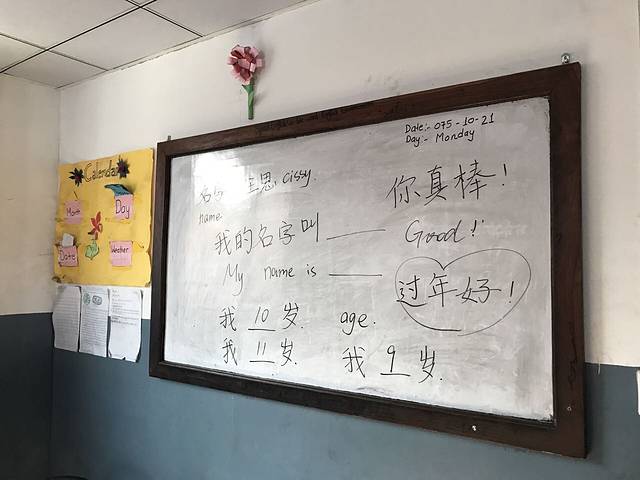 Calendar
Month
Day
Date
Weather
Date:- 075-10-21
Day:- Monday
名字 思, cissy.
name
你真棒!
我的名字叫 ____ Good!
My name is ____
过年好!
我 10 岁. age.
我 11 岁. 我 9 岁.